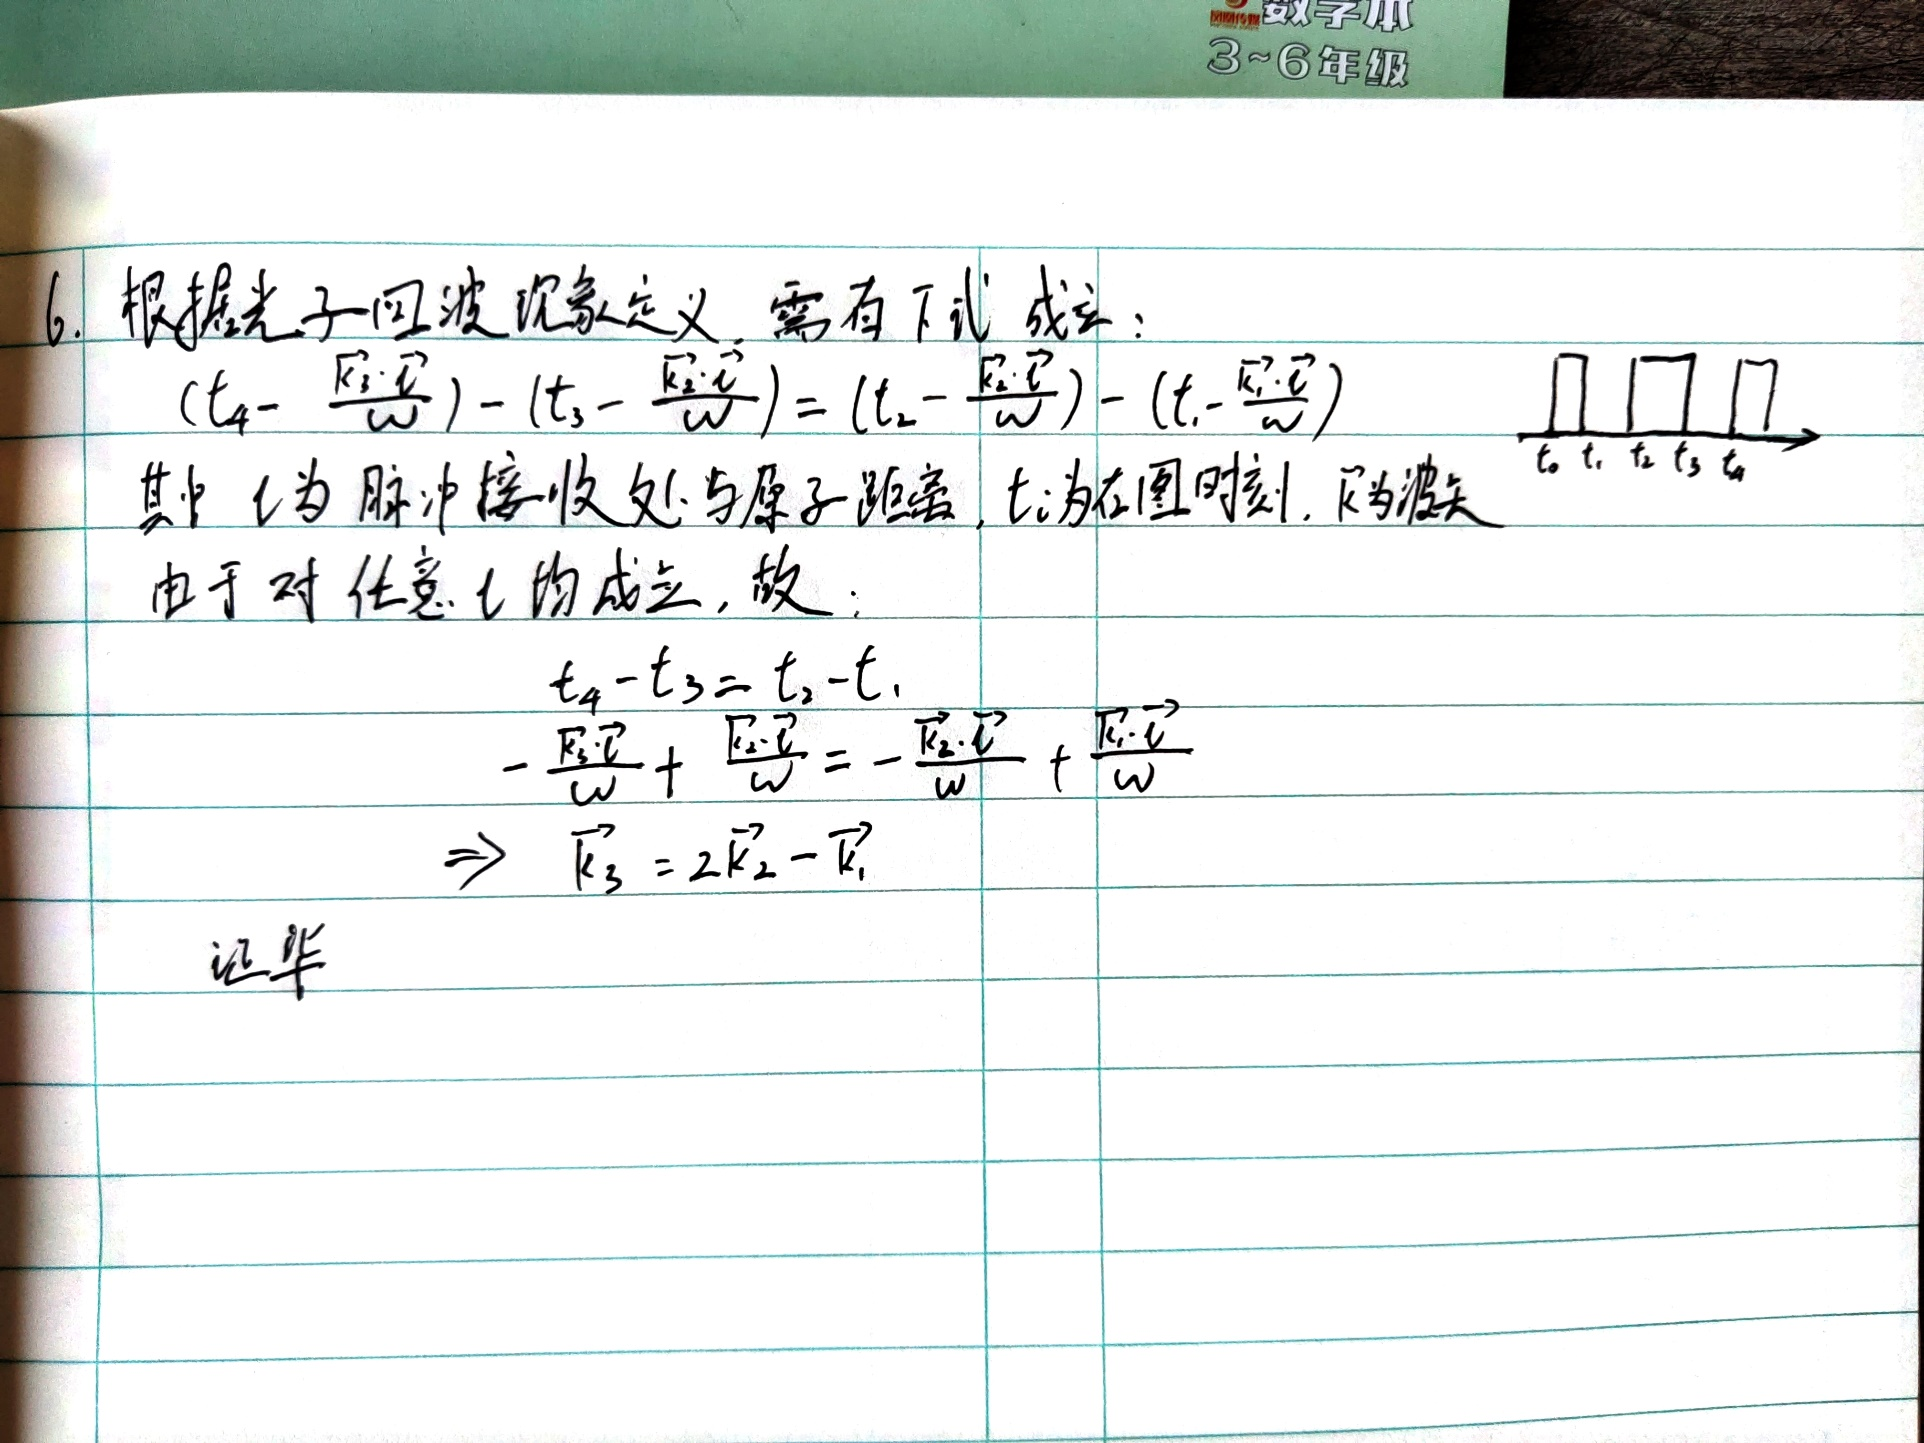 数学本
3~6年级
6. 根据光子回波现象定义,需有下式成立:
(t₄ - \frac{\vec{k_3}·\vec{l}}{ω}) - (t₃ - \frac{\vec{k_2}·\vec{l}}{ω}) = (t₂ - \frac{\vec{k_2}·\vec{l}}{ω}) - (t₁ - \frac{\vec{k_1}·\vec{l}}{ω})
t₀ t₁ t₂ t₃ t₄
其中 l为脉冲接收处与原子距离, tᵢ为右图时刻, \vec{k}为波矢
由于对任意 l 均成立, 故:
t₄ - t₃ = t₂ - t₁
- \frac{\vec{k_3}·\vec{l}}{ω} + \frac{\vec{k_2}·\vec{l}}{ω} = - \frac{\vec{k_2}·\vec{l}}{ω} + \frac{\vec{k_1}·\vec{l}}{ω}
⇒ \vec{k_3} = 2\vec{k_2} - \vec{k_1}
证毕